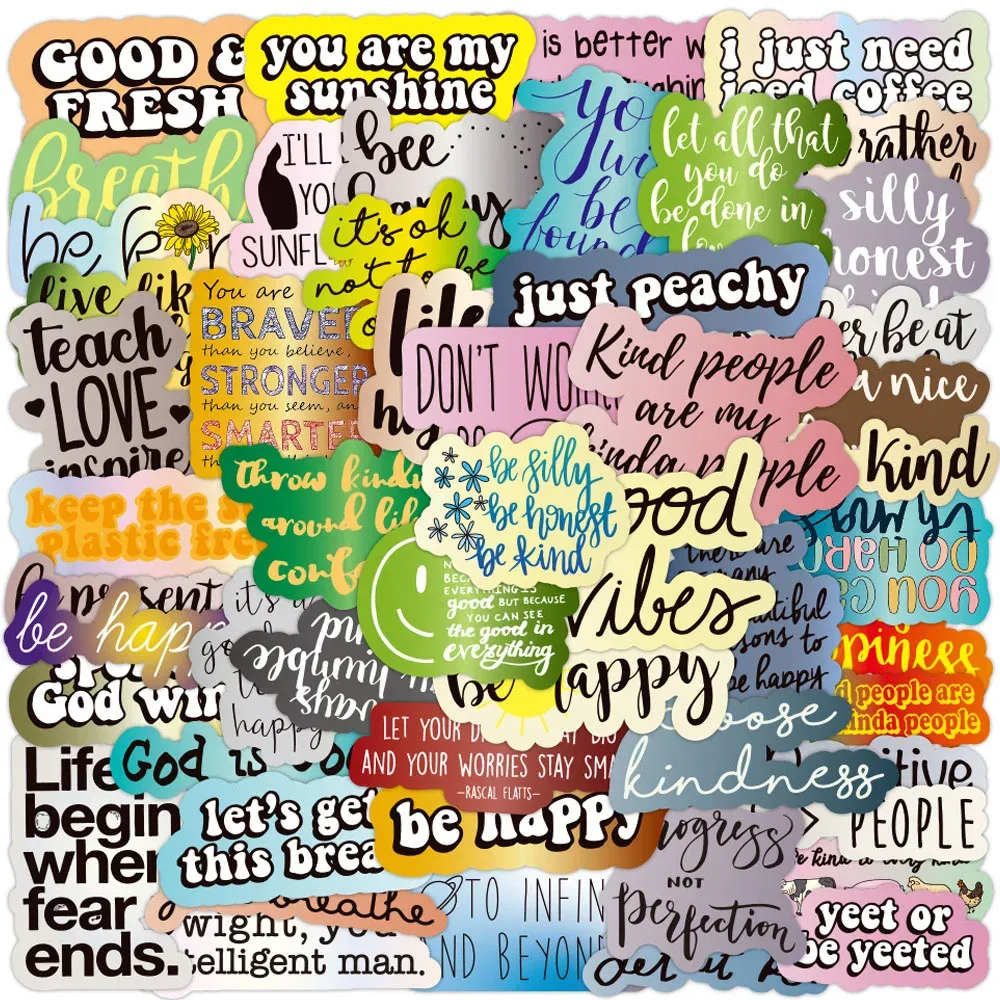 GOOD &
FRESH
you are my
sunshine
is better w
i just need
iced coffee
breath
I'LL
YOU
SUNFL
bee
happy
yo
be
found
let all that
you do
be done in
love
rather
silly
honest
kind
be kin
it's ok
not to be
live lik
You are
BRAVER
than you believe,
STRONGER
than you seem, an
SMARTE
th
life
hi
just peachy
DON'T WOR
Kind people
are my
kinda people
er be at
a nice
Kind
teach
LOVE
inspire
keep the s
plastic fre
throw kindn
around lik
conf
be silly
be honest
be kind
good
vibes
there are
any
utiful
sons to
be happy
YOU CA
DO HARD
be present
be happ
it's a
go
happy
always
humble
BECAUSE
EVERYTHING IS
good BUT BECAUSE
YOU CAN SEE
the good in
everything
be happy
piness
d people are
inda people
God win
God is goo
LET YOUR D
AY BIG
AND YOUR WORRIES STAY SMA
-RASCAL FLATTS-
choose
kindness
itive
Life
begin
when
fear
ends.
let's get
this brea
be happy
progress
NOT
perfection
> PEOPLE
breathe
wight, yo
telligent man.
TO INFIN
ND BEYON
get it
yeet or
be yeeted